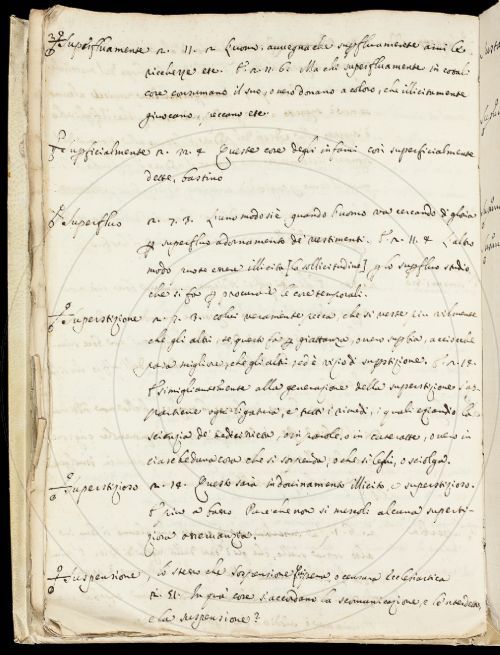 Superfluamente n. 11. 2 L'uomo, avvegna che superfluamente ami le
ricchezze etc. n. 11. 6. Ma chi superfluamente in cotal
cose consumano il suo, o vero donano a coloro, che illicitamente
giuocano, peccano etc.
Superficialmente n. 12. 4 Queste cose degli infami così superficialmente
dette, bastino
Superfluo n. 7. 3. L'uno modo si è quando l'uomo va cercando di gloria
superfluo adornamento de' vestimenti. n. 11. 4 L'altro
modo puote essere illicita [la sollicitudine] lo superfluo studio,
che si fa procurare le cose temporali.
Superstizione n. 3. colui veramente pecca, che si veste più vilmente
che gli altri, e questo fa giattanza, o vero superbia, acciocché
paia migliore, che gli altri ed è vizio di superstizione. n. 18.
Simigliantemente alla generazione della superstizione s'ap-
partiene ogni ligatura, e tutti i rimedj, i quali eziandio la
scienzia de' Medici vieta, o in parole, o in cateratte, o vero in
ciascheduna cosa che si sospenda, o che si leghi, o sciolga.
Superstizioso n. 18. Questo sarà indovinamento illicito, e superstizioso.
Pure che non si mescoli alcuna supersti-
ziosa osservanzia.
Suspensione, lo stesso che Sospensione pena, o censura Ecclesiastica
n. 51. In qua' cose s'accordano la scomunicazione, e lo 'nterdetto,
e la suspensione?